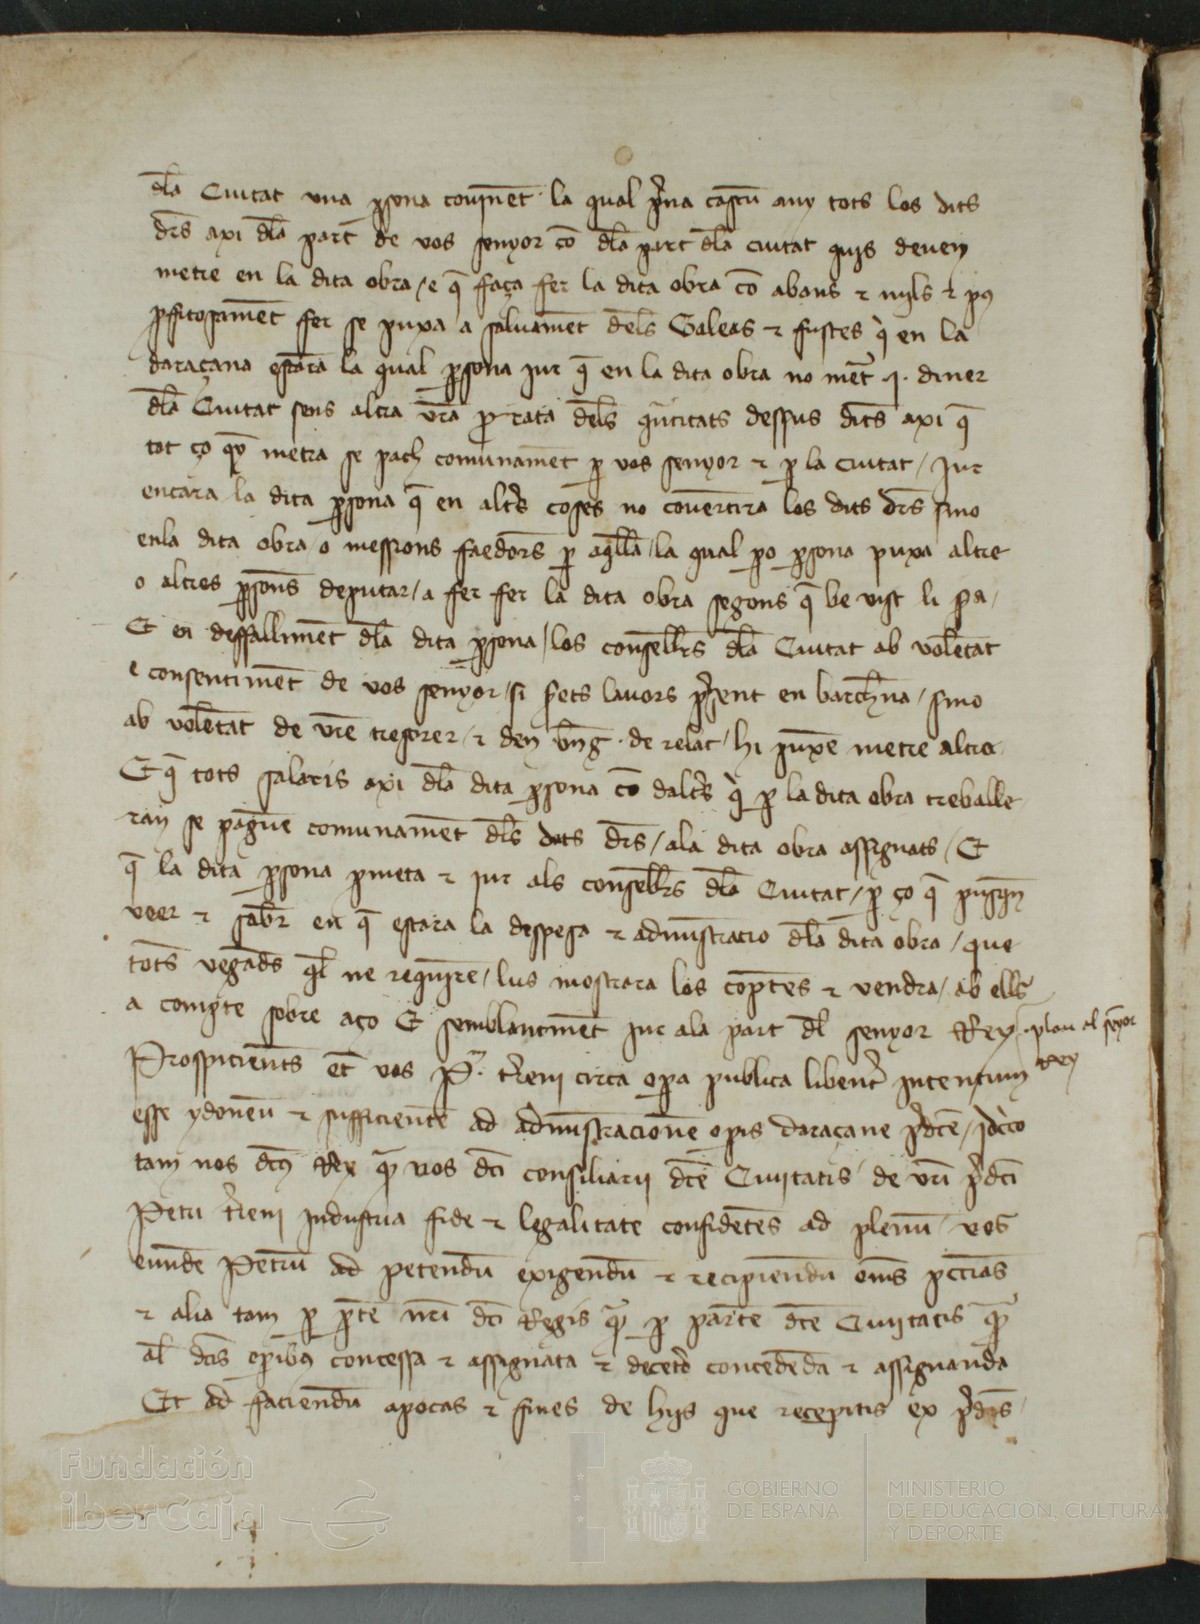 dla Ciutat una psona conuinẽt la qual pͥna cascũ any tots los dits
drs̃ axi dla part de vos senyor cõ dla part dla ciutat quis deuen
metre en la dita obra / e q̃ faça fer la dita obra cõ abans & mils & pus
pfitosamẽt fer se puxa a saluamẽt dels Galeas & fustes q̃ en la
daraçana estara la qual psona jur q̃ en la dita obra no metr̃ .j. diner
dla Ciutat sens altra vr̃a p rata dels quãtitats dessus dits axi q̃
tot ço q̃ metra se pach comunamẽt p vos senyor & p la Ciutat / Jur
encara la dita psona q̃ en altrẽs coses no cõuertira los dits drs̃ sino
enla dita obra / o messions faedors p aq̃lla / la qual po psona puxa altre
o altres psones deputar / a fer fer la dita obra segons q̃ be vist li pa /
E en deffallimẽt dla dita psona / los consellrs̃ dla Ciutat ab volẽtat
e consentimẽt de vos senyor / si sets lauors pͥsent en barchn̄a / sino
ab volẽtat de vr̃e tresorer / & den de relat / hi puxẽ metre altre
E q̃ tots salaris axi dla dita psona cõ daltrẽs q̃ p la dita obra treballe
ran se paguẽ comunamẽt dls dits drs̃ / ala dita obra assignats / E
q̃ la dita psona pmeta & jur als consellrs̃ dla Ciutat / p ço q̃ pusquẽ
veer & sabr̃ en q̃ estara la despesa & administracio dla dita obra / que
tots vegades ql̃ ne requirẽ / lus mostrara los cõptes & vendra / ab ells
a compte sobre aço E semblantmẽt jur ala part dl senyor Rey / plau al senyor
Rey
Prospicientẽs et vos P. tr̃eni circa opa publica libentr̃ intentum
esse ydoneũ & sufficientẽ ad administracionẽ opis daraçane pͥdcẽ / idcͥco
tam nos dcũs Rex q̃ nos dcĩ consiliarii dcẽ Ciuitatis de vrĩ pͥdcĩ
Petri tr̃eni industria fide & legalitate confidẽtes ad plenũ / vos
eundẽ Petrũ ad petendũ exigendũ & recipiendũ om̃s pccñias
& alia tam p ptẽ nrĩ dñi Regis q̃ p partẽ dcẽ Ciuitatis q̃
al̃ dcĩs opibus concessa & assignata & decetero concedẽda & assignanda
Et ad faciendũ apocas & fines de hijs que recepitis ex pͥdcĩs
Fundación
iberCaja
GOBIERNO
DE ESPAÑA
MINISTERIO
DE EDUCACIÓN, CULTURA
Y DEPORTE